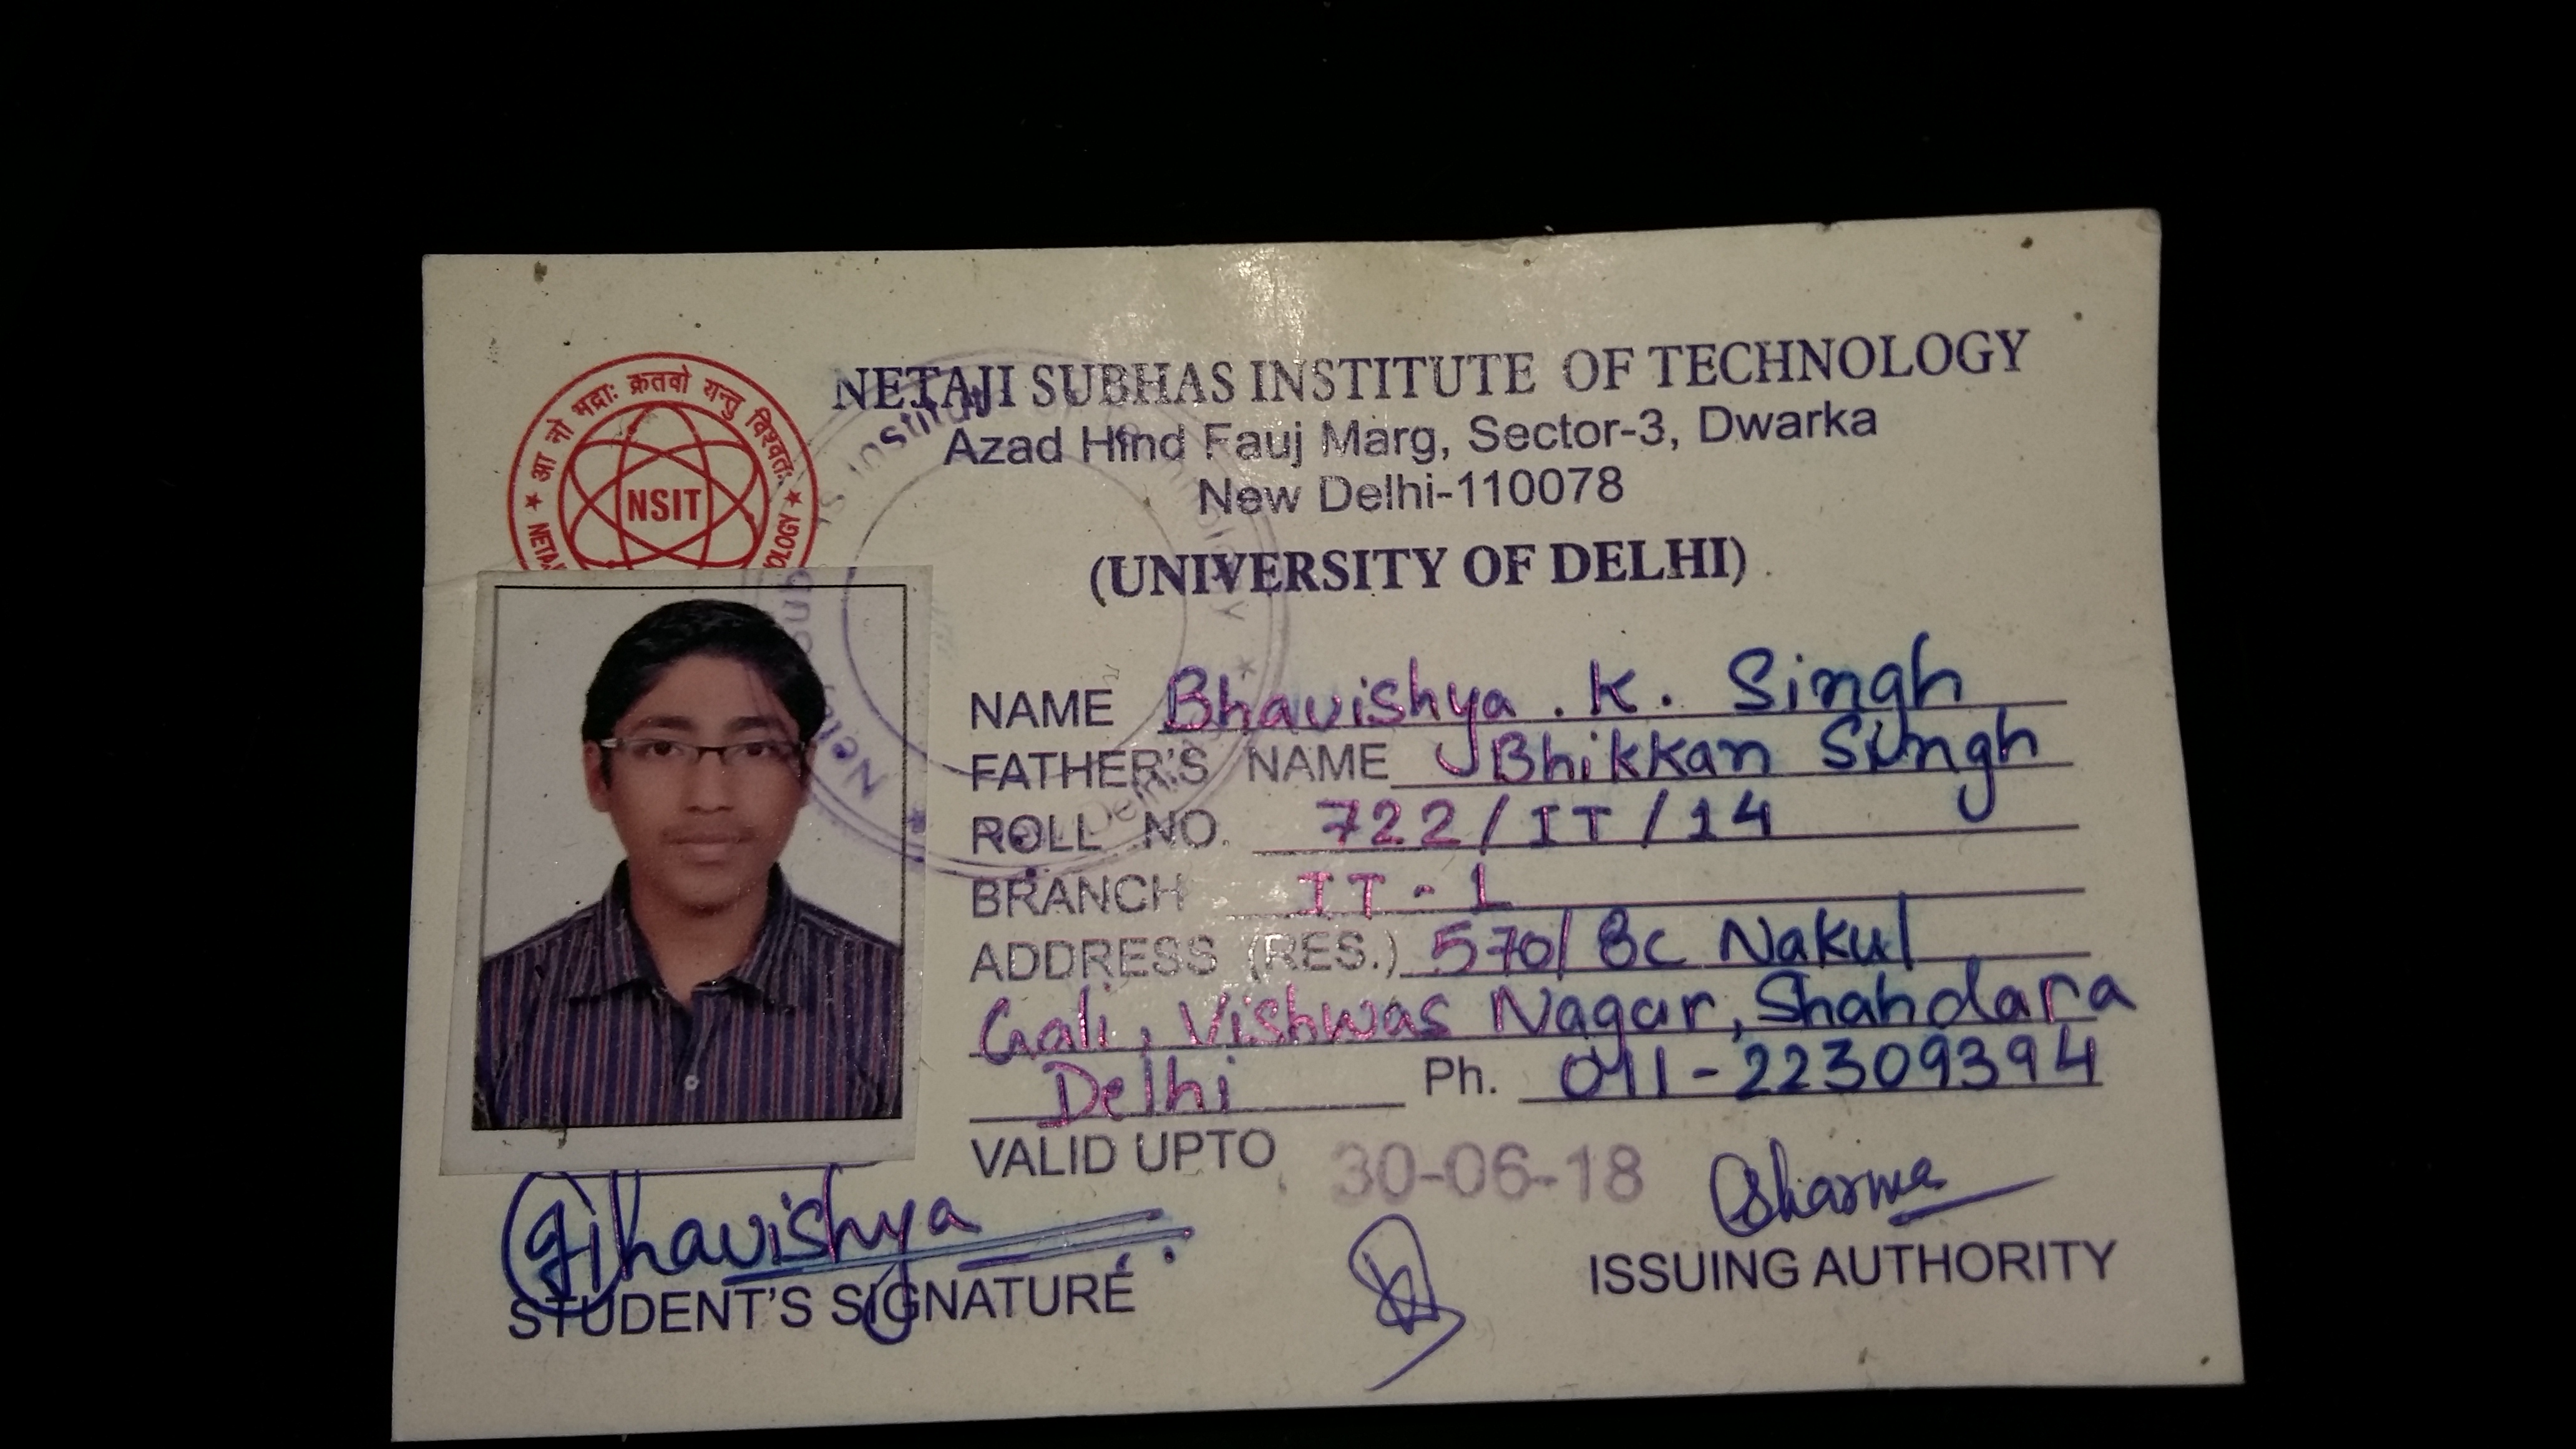 आ नो भद्राः क्रतवो यन्तु विश्वतः
NSIT
NETAJI SUBHAS INSTITUTE OF TECHNOLOGY
Azad Hind Fauj Marg, Sector-3, Dwarka
New Delhi-110078
(UNIVERSITY OF DELHI)
NAME Bhavishya . K. Singh
FATHER'S NAME Bhikkan Singh
ROLL NO. 722/IT/14
BRANCH IT-1
ADDRESS (RES.) 570/8C Nakul
Gali, Vishwas Nagar, Shahdara
Delhi Ph. 011-22309394
VALID UPTO 30-06-18
Bhavishya Sharma
STUDENT'S SIGNATURE ISSUING AUTHORITY